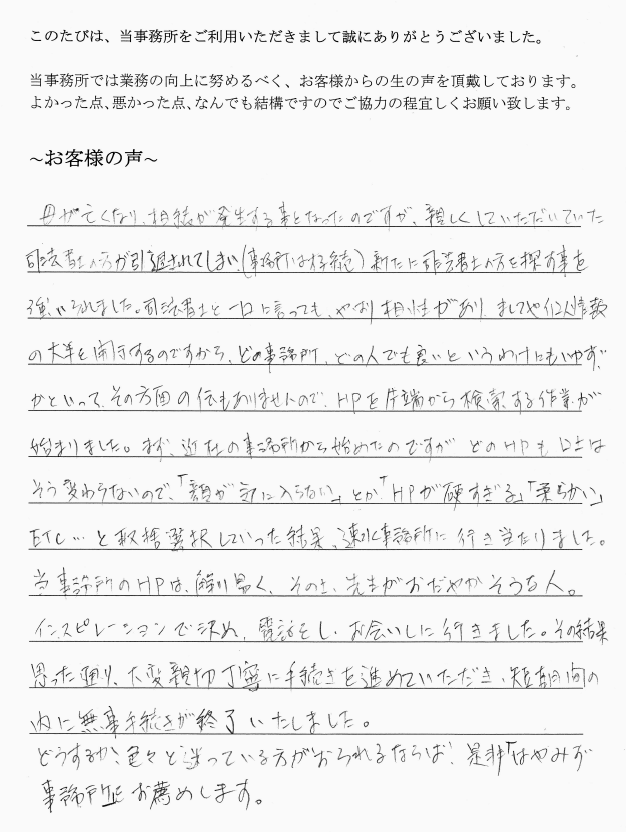 このたびは、当事務所をご利用いただきまして誠にありがとうございました。
当事務所では業務の向上に努めるべく、お客様からの生の声を頂戴しております。
よかった点、悪かった点、なんでも結構ですのでご協力の程宜しくお願い致します。
~お客様の声~
母が亡くなり、相続が発生する事となったのですが、親しくしていただいていた
司法書士の方が引退されてしまい(事務所は存続)新たに司法書士の方を探す事を
強いられました。司法書士と一口に言っても、やはり相性があり、ましてや個人情報
の大半を開示するのですから、どの事務所、どの人でも良いというわけにもいかず、
かといって、その方面の伝もありませんので、HPを片端から検索する作業が
始まりました。まず、近在の事務所から始めたのですが どのHPも
そう変わらないので、「顔が気に入らない」とか、「HPが硬すぎる」「柔らかい」
ETC…と取捨選択していった結果、速水事務所に行き当たりました。
当事務所のHPは、解り易く、その上、先生がおだやかそうな人。
インスピレーションで決め、電話をし、お会いしに行きました。その結果
思った通り、大変親切丁寧に手続きを進めていただき、短期間の
内に無事手続きが終了いたしました。
どうするか、色々と迷っている方がおられるならば、是非「はやみず
事務所」お薦めします。